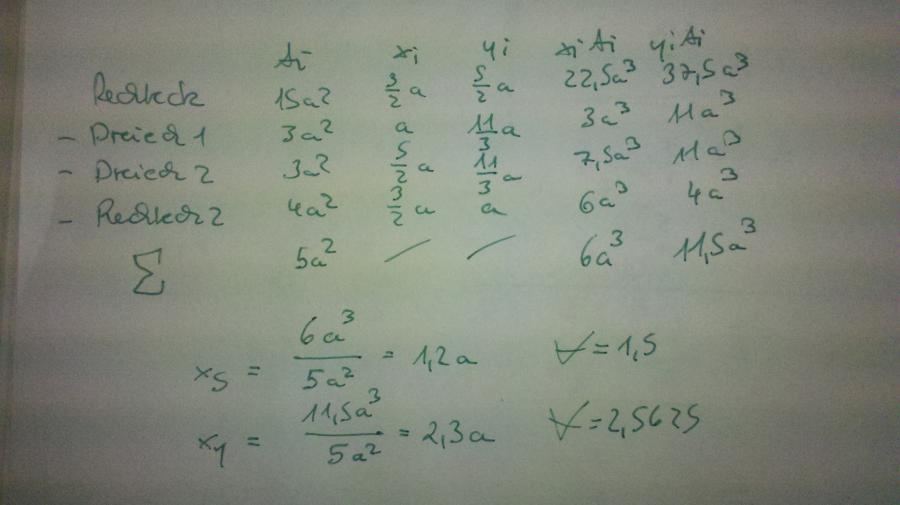 Ai xi yi xiAi yiAi
Rechteck 15a² 3/2 a 5/2 a 22,5a³ 37,5a³
- Dreieck 1 3a² a 11/3 a 3a³ 11a³
- Dreieck 2 3a² 5/2 a 11/3 a 7,5a³ 11a³
- Rechteck 2 4a² 3/2 a a 6a³ 4a³
∑ 5a² / / 6a³ 11,5a³
xS = 6a³/5a² = 1,2a = 1,5
xy = 11,5a³/5a² = 2,3a = 2,5625